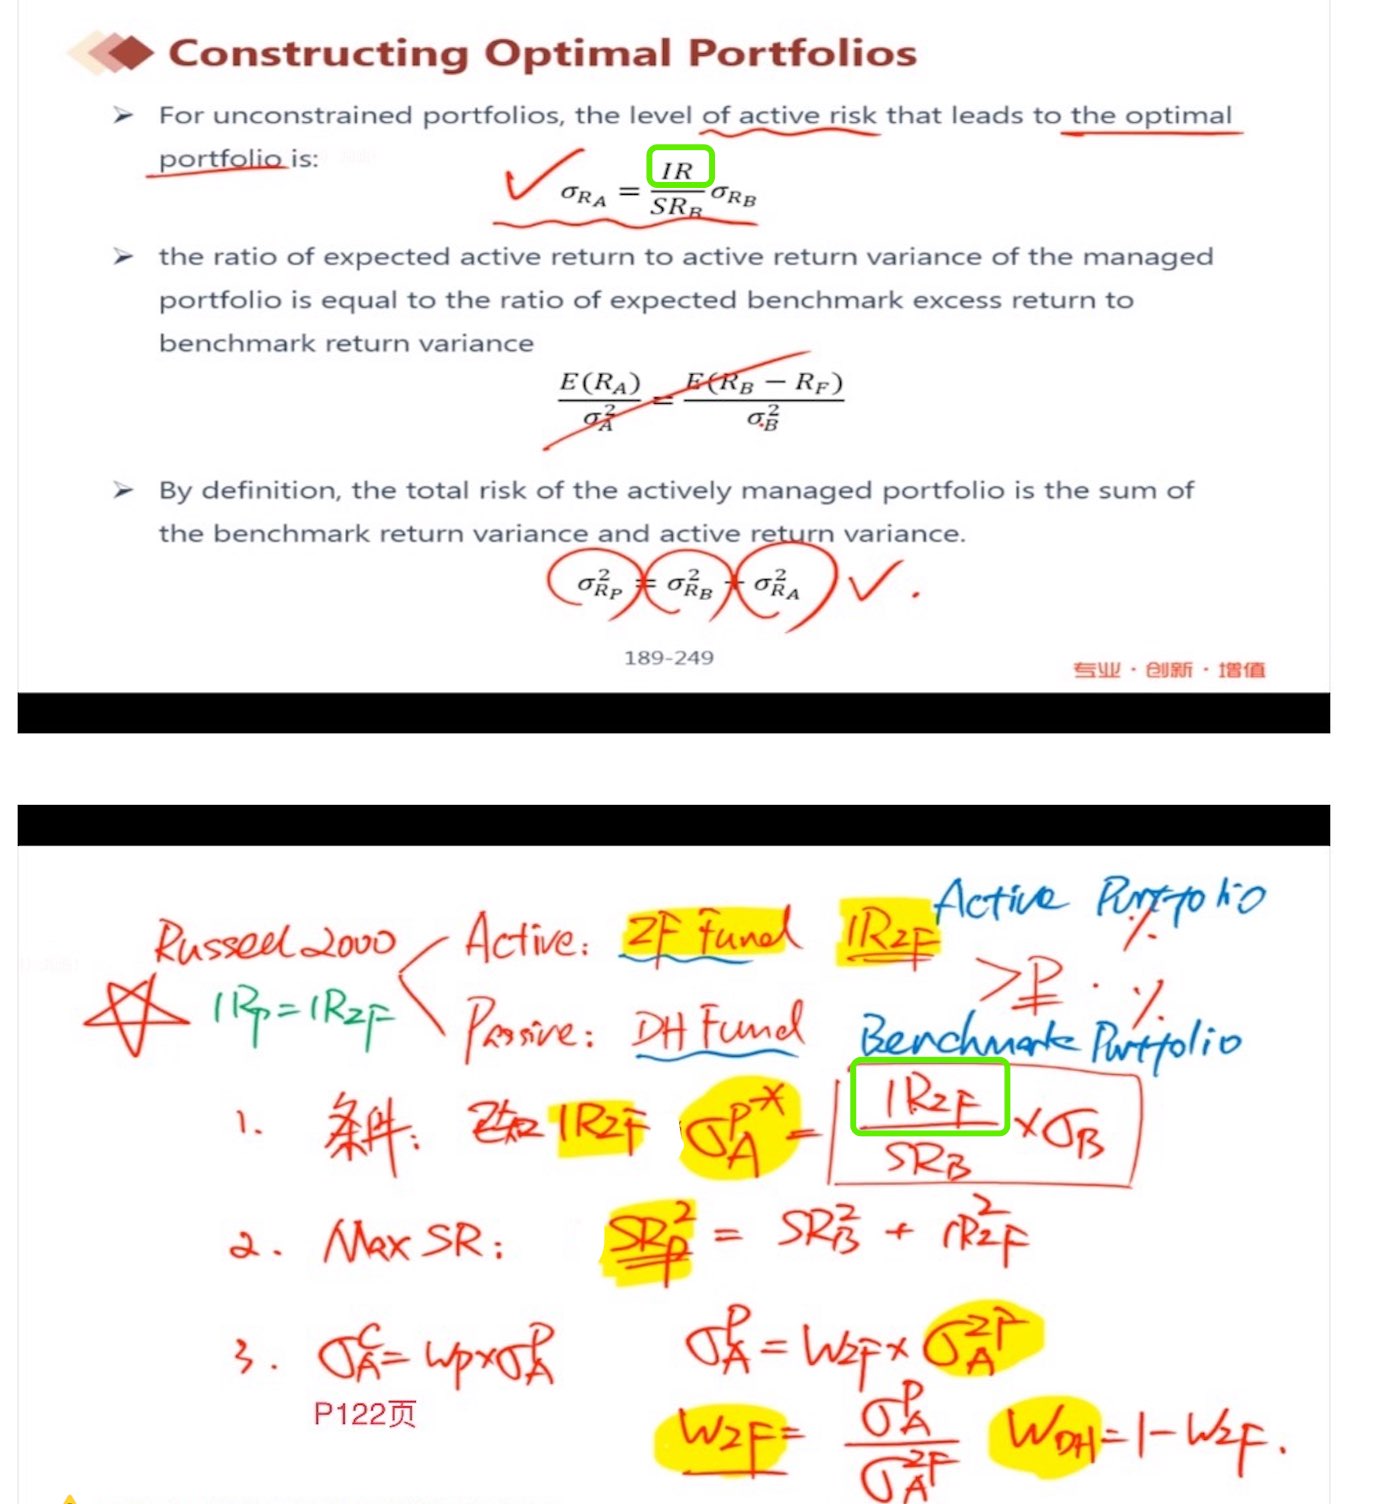 Constructing Optimal Portfolios
➤ For unconstrained portfolios, the level of active risk that leads to the optimal
portfolio is:
σ_{R_A} = \frac{IR}{SR_B} σ_{R_B}
➤ the ratio of expected active return to active return variance of the managed
portfolio is equal to the ratio of expected benchmark excess return to
benchmark return variance
\frac{E(R_A)}{σ_A^2} = \frac{E(R_B − R_F)}{σ_B^2}
➤ By definition, the total risk of the actively managed portfolio is the sum of
the benchmark return variance and active return variance.
σ_{R_P}^2 = σ_{R_B}^2 + σ_{R_A}^2
189-249
专业 · 创新 · 增值
Active Portfolio
Russell 2000 Active: ZF Fund IR_{ZF} %
IR_P = IR_{ZF} > P · %
Passive: DH Fund Benchmark Portfolio
1. 条件: 已知 IR_{ZF} σ_A^{P*} = \frac{IR_{ZF}}{SR_B} × σ_B
2. Max SR: SR_P^2 = SR_B^2 + IR_{ZF}^2
3. σ_A^C = W_P × σ_A^P σ_A^P = W_{ZF} × σ_A^{ZF}
P122页
W_{ZF} = \frac{σ_A^P}{σ_A^{ZF}} W_{DH} = 1 − W_{ZF}.